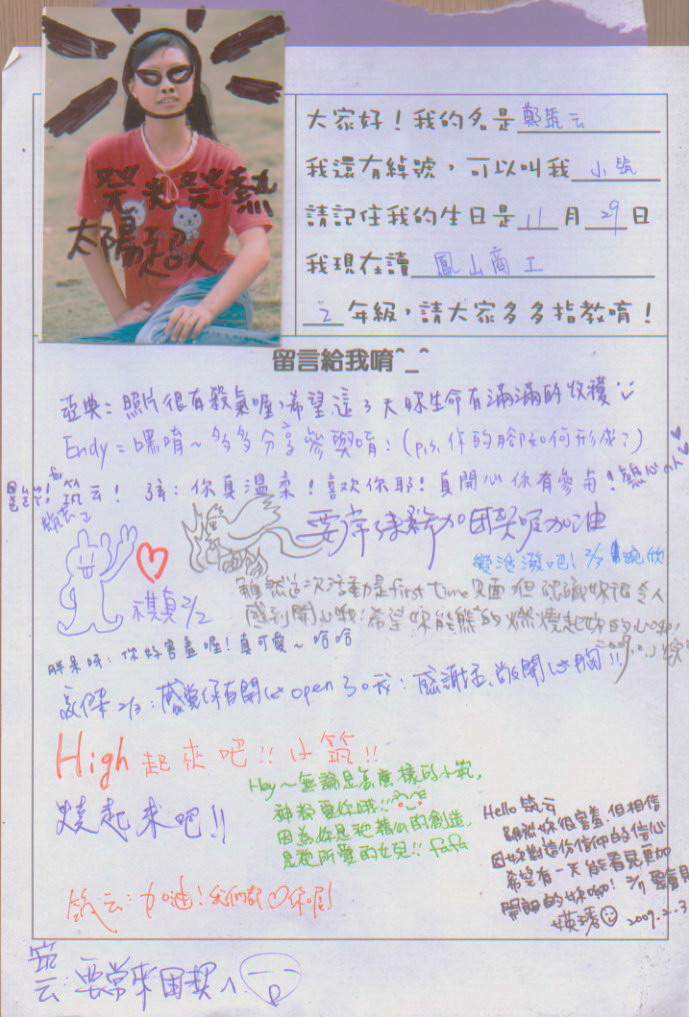 發光發熱
太陽超人
大家好！我的名是鄭筑云
我還有綽號，可以叫我小筑
請記住我的生日是11月29日
我現在讀鳳山商工
2年級，請大家多多指教唷！
留言給我唷^_^
亞典：照片很有殺氣喔，希望這3天妳生命有滿滿的收穫
Endy = 嘿唷～多多分享參與唷！(p.s. 你的腳如何形成？)
筑云！
你真溫柔！喜歡你耶！真開心你有參與！熱心的人
要常來參加團契呢加油
變活潑吧！2/3 琬欣
祺貞 2/2
雖然這次活動是first time見面但認識妳很令人
感到開心哦！希望妳能熊熊的燃燒起妳的心哦！
你好害羞喔！真可愛～哈哈
2/3：感覺你有開心open 感謝主，敞開心胸！！
High起來吧！！小筑！！
Hey～無論是怎麼樣的小筑，
神都愛你哦！！
因為妳是祂精心的創造，
是祂所愛的女兒！！ FeFe
燒起來吧！！
Hello 筑云
雖然妳很害羞，但相信
因妳對這份信仰的信心
希望有一天能看見更加
開朗的妳呦！
瑛琇 2009.2.3
筑云：加油！我們都♡你喔！
筑云：要常來團契ㄟ